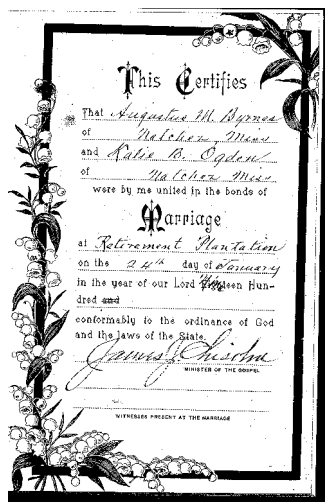 This Certifies
That Augustus M. Byrnes
of Natchez Miss
and Katie B. Ogden
of Natchez Miss
were by me united in the bonds of
Marriage
at Retirement Plantation
on the 24th day of January
in the year of our Lord teen Hun-
dred and
conformably to the ordinance of God
and the laws of the State.
James J Chisolm
MINISTER OF THE GOSPEL
WITNESSES PRESENT AT THE MARRIAGE